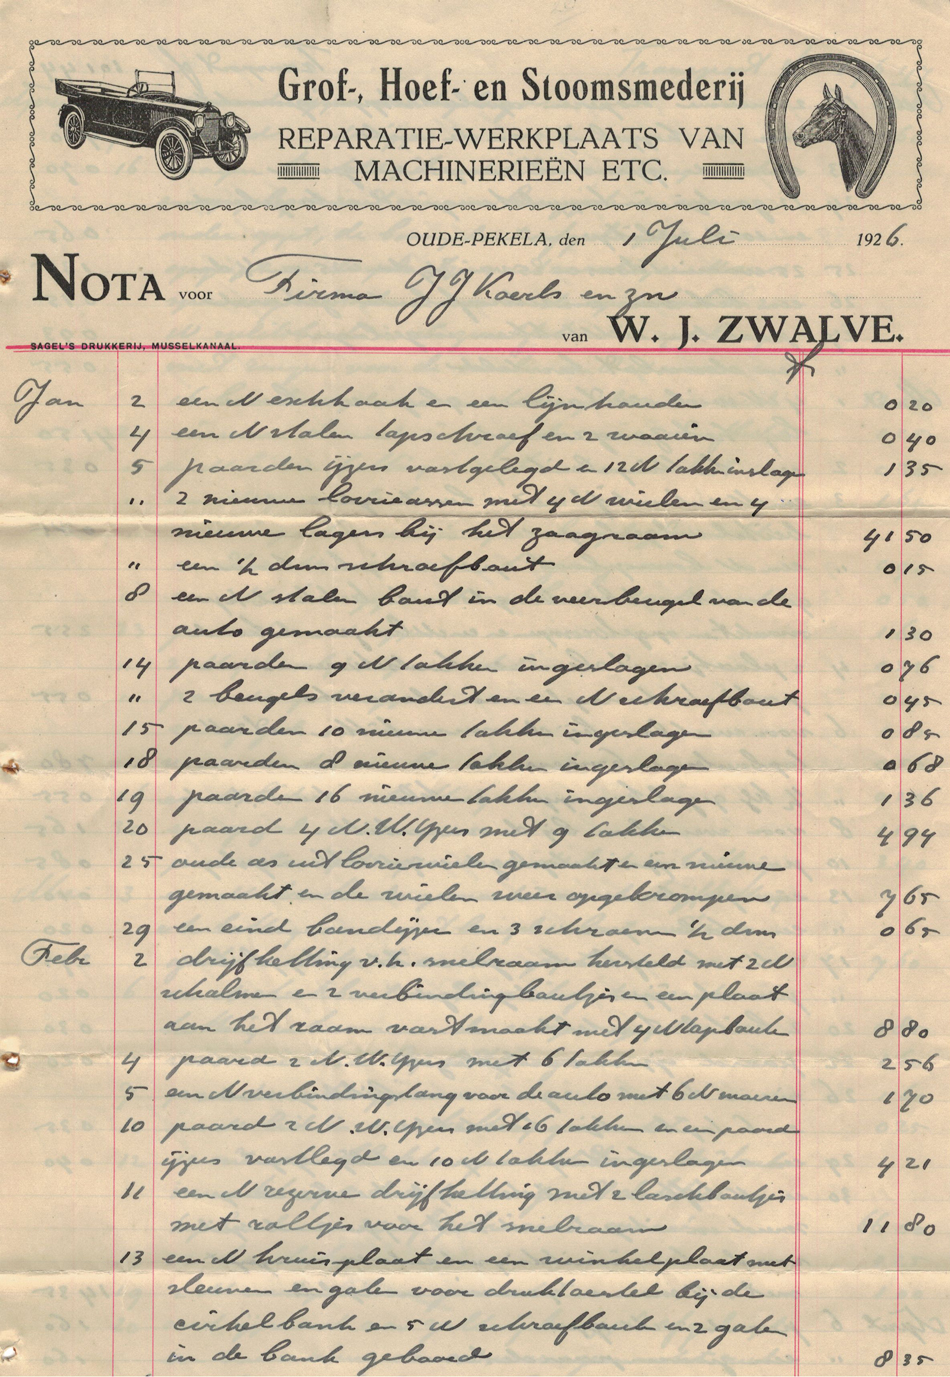 Grof-, Hoef- en Stoomsmederij
REPARATIE-WERKPLAATS VAN
MACHINERIEËN ETC.
OUDE-PEKELA, den 1 Juli 1926.
NOTA voor Firma J J Koerts en zn
van W. J. ZWALVE.
SAGEL'S DRUKKERIJ, MUSSELKANAAL.
Jan 2 een N en een lijnhouder 0 20
4 een N stalen tapschroef en 2 0 40
5 paarden ijzers vastgelegd en 12 N takken inslagen 1 35
" 2 nieuwe lorrieassen met 4 N wielen en 4
nieuwe lagers bij het zaagraam 41 50
" een ½ dms schroefbout 0 15
8 een N stalen bout in de veerbeugel van de
auto gemaakt 1 30
14 paarden 9 N takken ingeslagen 0 76
" 2 beugels verandert en een N schroefbout 0 45
15 paarden 10 nieuwe takken ingeslagen 0 85
18 paarden 8 nieuwe takken ingeslagen 0 68
19 paarden 16 nieuwe takken ingeslagen 1 36
20 paard 4 N.W. ijzers met 9 takken 4 94
25 oude as uit lorriewielen gemaakt en een nieuwe
gemaakt en de wielen weer opgekrompen 7 65
29 een eind bandijzer en 3 schroeven ½ dms 0 65
Febr 2 drijfketting v.h. snelraam hersteld met 2 N
schalmen en 2 verbindingboutjes en een plaat
aan het raam vast maakt met 4 N tapbouten 8 80
4 paard 2 N.W. ijzers met 6 takken 2 56
5 een N verbindingstang voor de auto met 6 N moeren 1 70
10 paard 2 N.W. ijzers met 6 takken en een paard
ijzers vastlegd en 10 N takken ingeslagen 4 21
11 een N rezerve drijfketting met 2 laschboutjes
met roltjes voor het snelraam 11 80
13 een N kruisplaat en een winkelplaat met
sleuven en gaten voor druktoestel bij de
cirkelbank en 5 N schroefbouten en 2 gaten
in de bank geboord 8 35